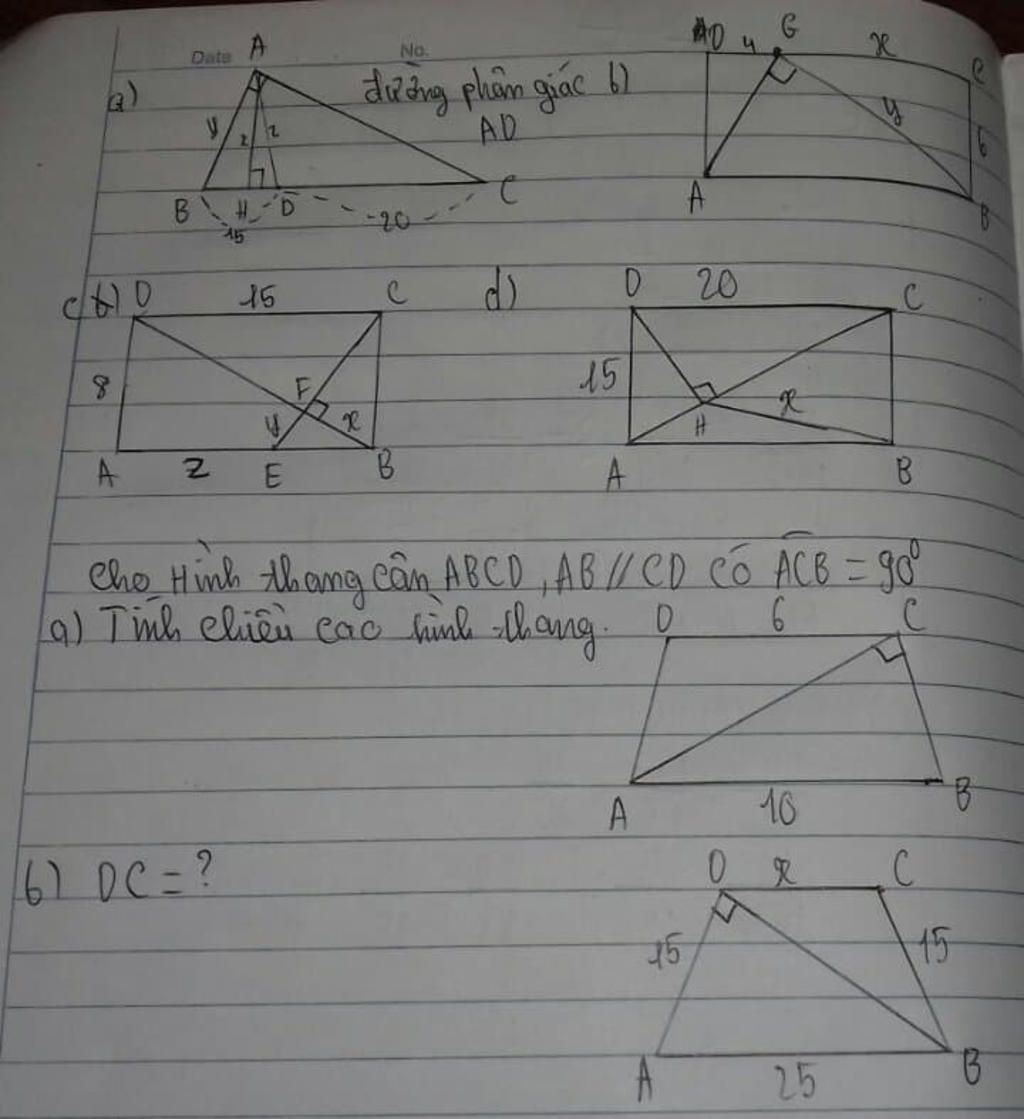 Date No.
a) đường phân giác AD
A
y
z
z
B H D C
15
20
b)
D 4 G x C
y
6
A B
c)
D 15 C
8
F
y x
A z E B
d)
D 20 C
15
x
H
A B
Cho Hình thang cân ABCD, AB // CD có ACB = 90⁰
a) Tính chiều cao hình thang.
D 6 C
A 10 B
b) DC = ?
D x C
15 15
A 25 B